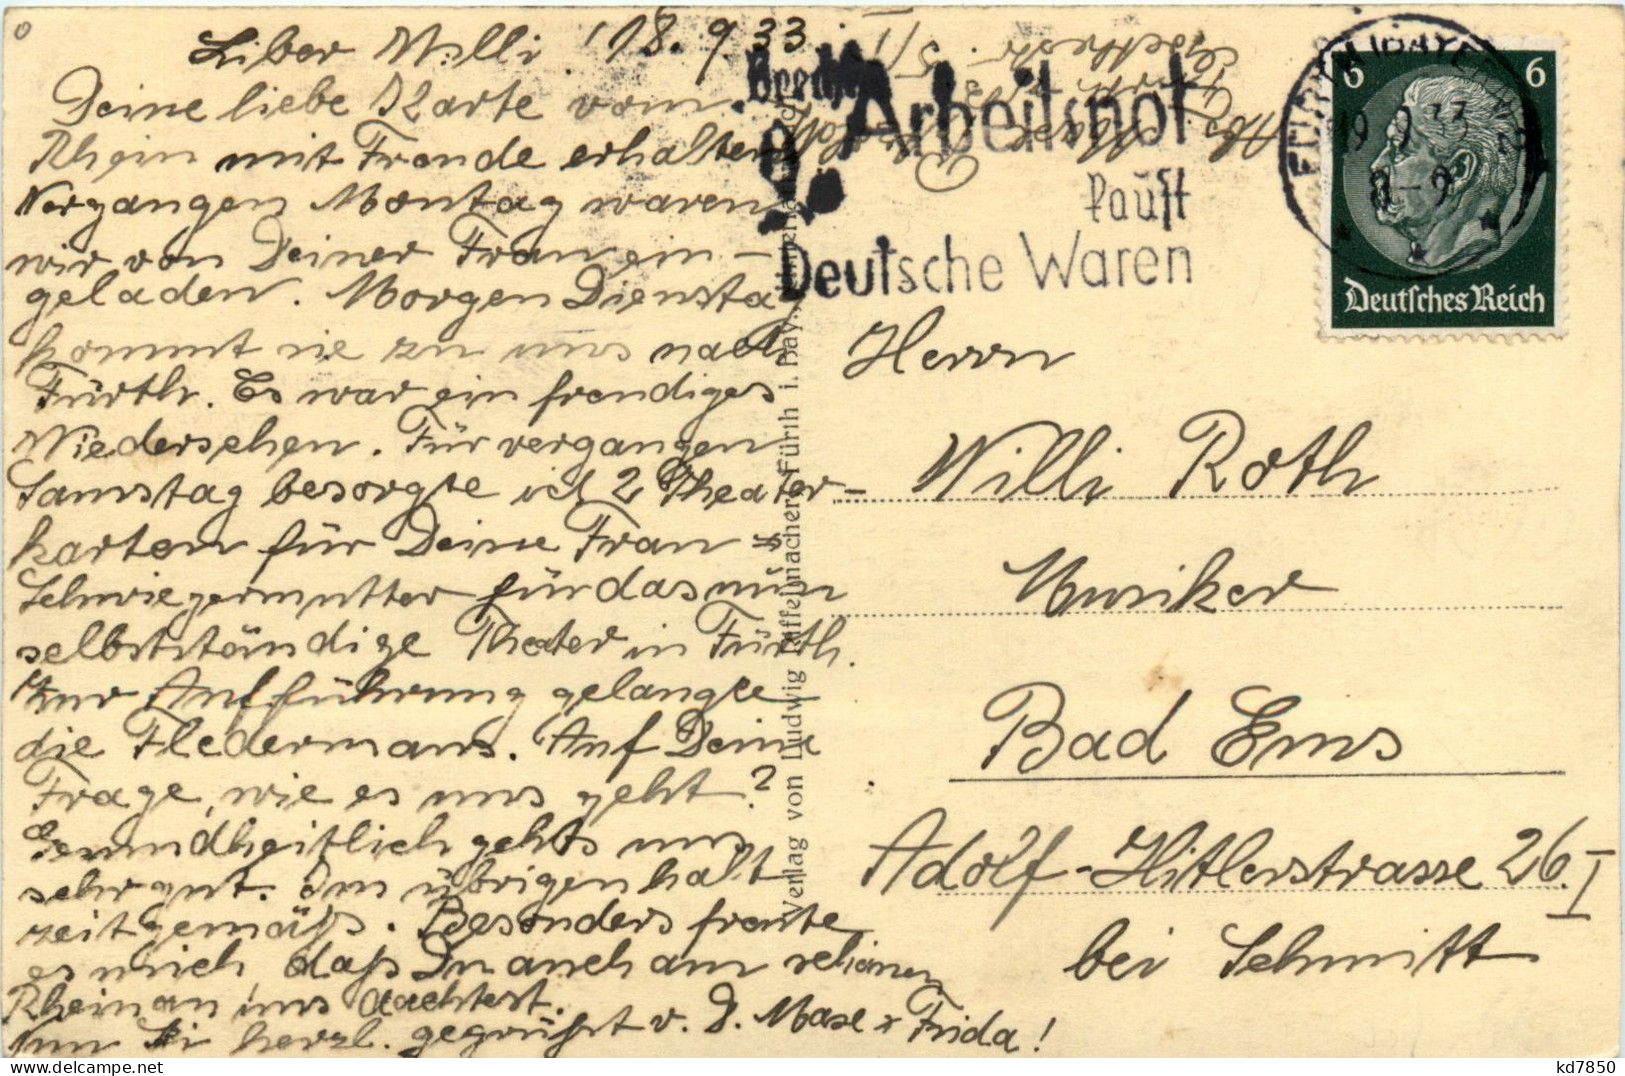 Liber Willi! 18. 9. 33.
Deine liebe Karte vom
Rhein mit Freude erhalten
Vergangen Montag waren
wir von Deiner Frau ein-
geladen. Morgen Dienstag
kommt sie zu uns nach
Fürth. Es war ein freudiges
Wiedersehen. Für vergangen
Samstag besorgte ich 2 Theater-
karten für Deine Frau u.
Schwiegermutter für das nun
selbstständige Theater in Fürth.
Zur Aufführung gelangte
die Fledermaus. Auf Deine
Frage, wie es uns geht?
Gesundheitlich gehts uns
sehr gut. Im übrigen halt
zeitgemäß. Besonders freute
es mich, daß Du auch am schönen
Rhein an uns dachtest.
Nun sei herzl. gegrüßt v. D. Maxe u. Frida!
Verlag von Ludwig Riffelmacher, Fürth i. Bay.
Arbeitsnot
kauft
Deutsche Waren
FÜRTH (BAYERN) 2
19.9.33
8-9
6 6
Deutsches Reich
Herrn
Willi Roth
Musiker
Bad Ems
Adolf-Hitlerstrasse 26. I
bei Schmitt
kd7850